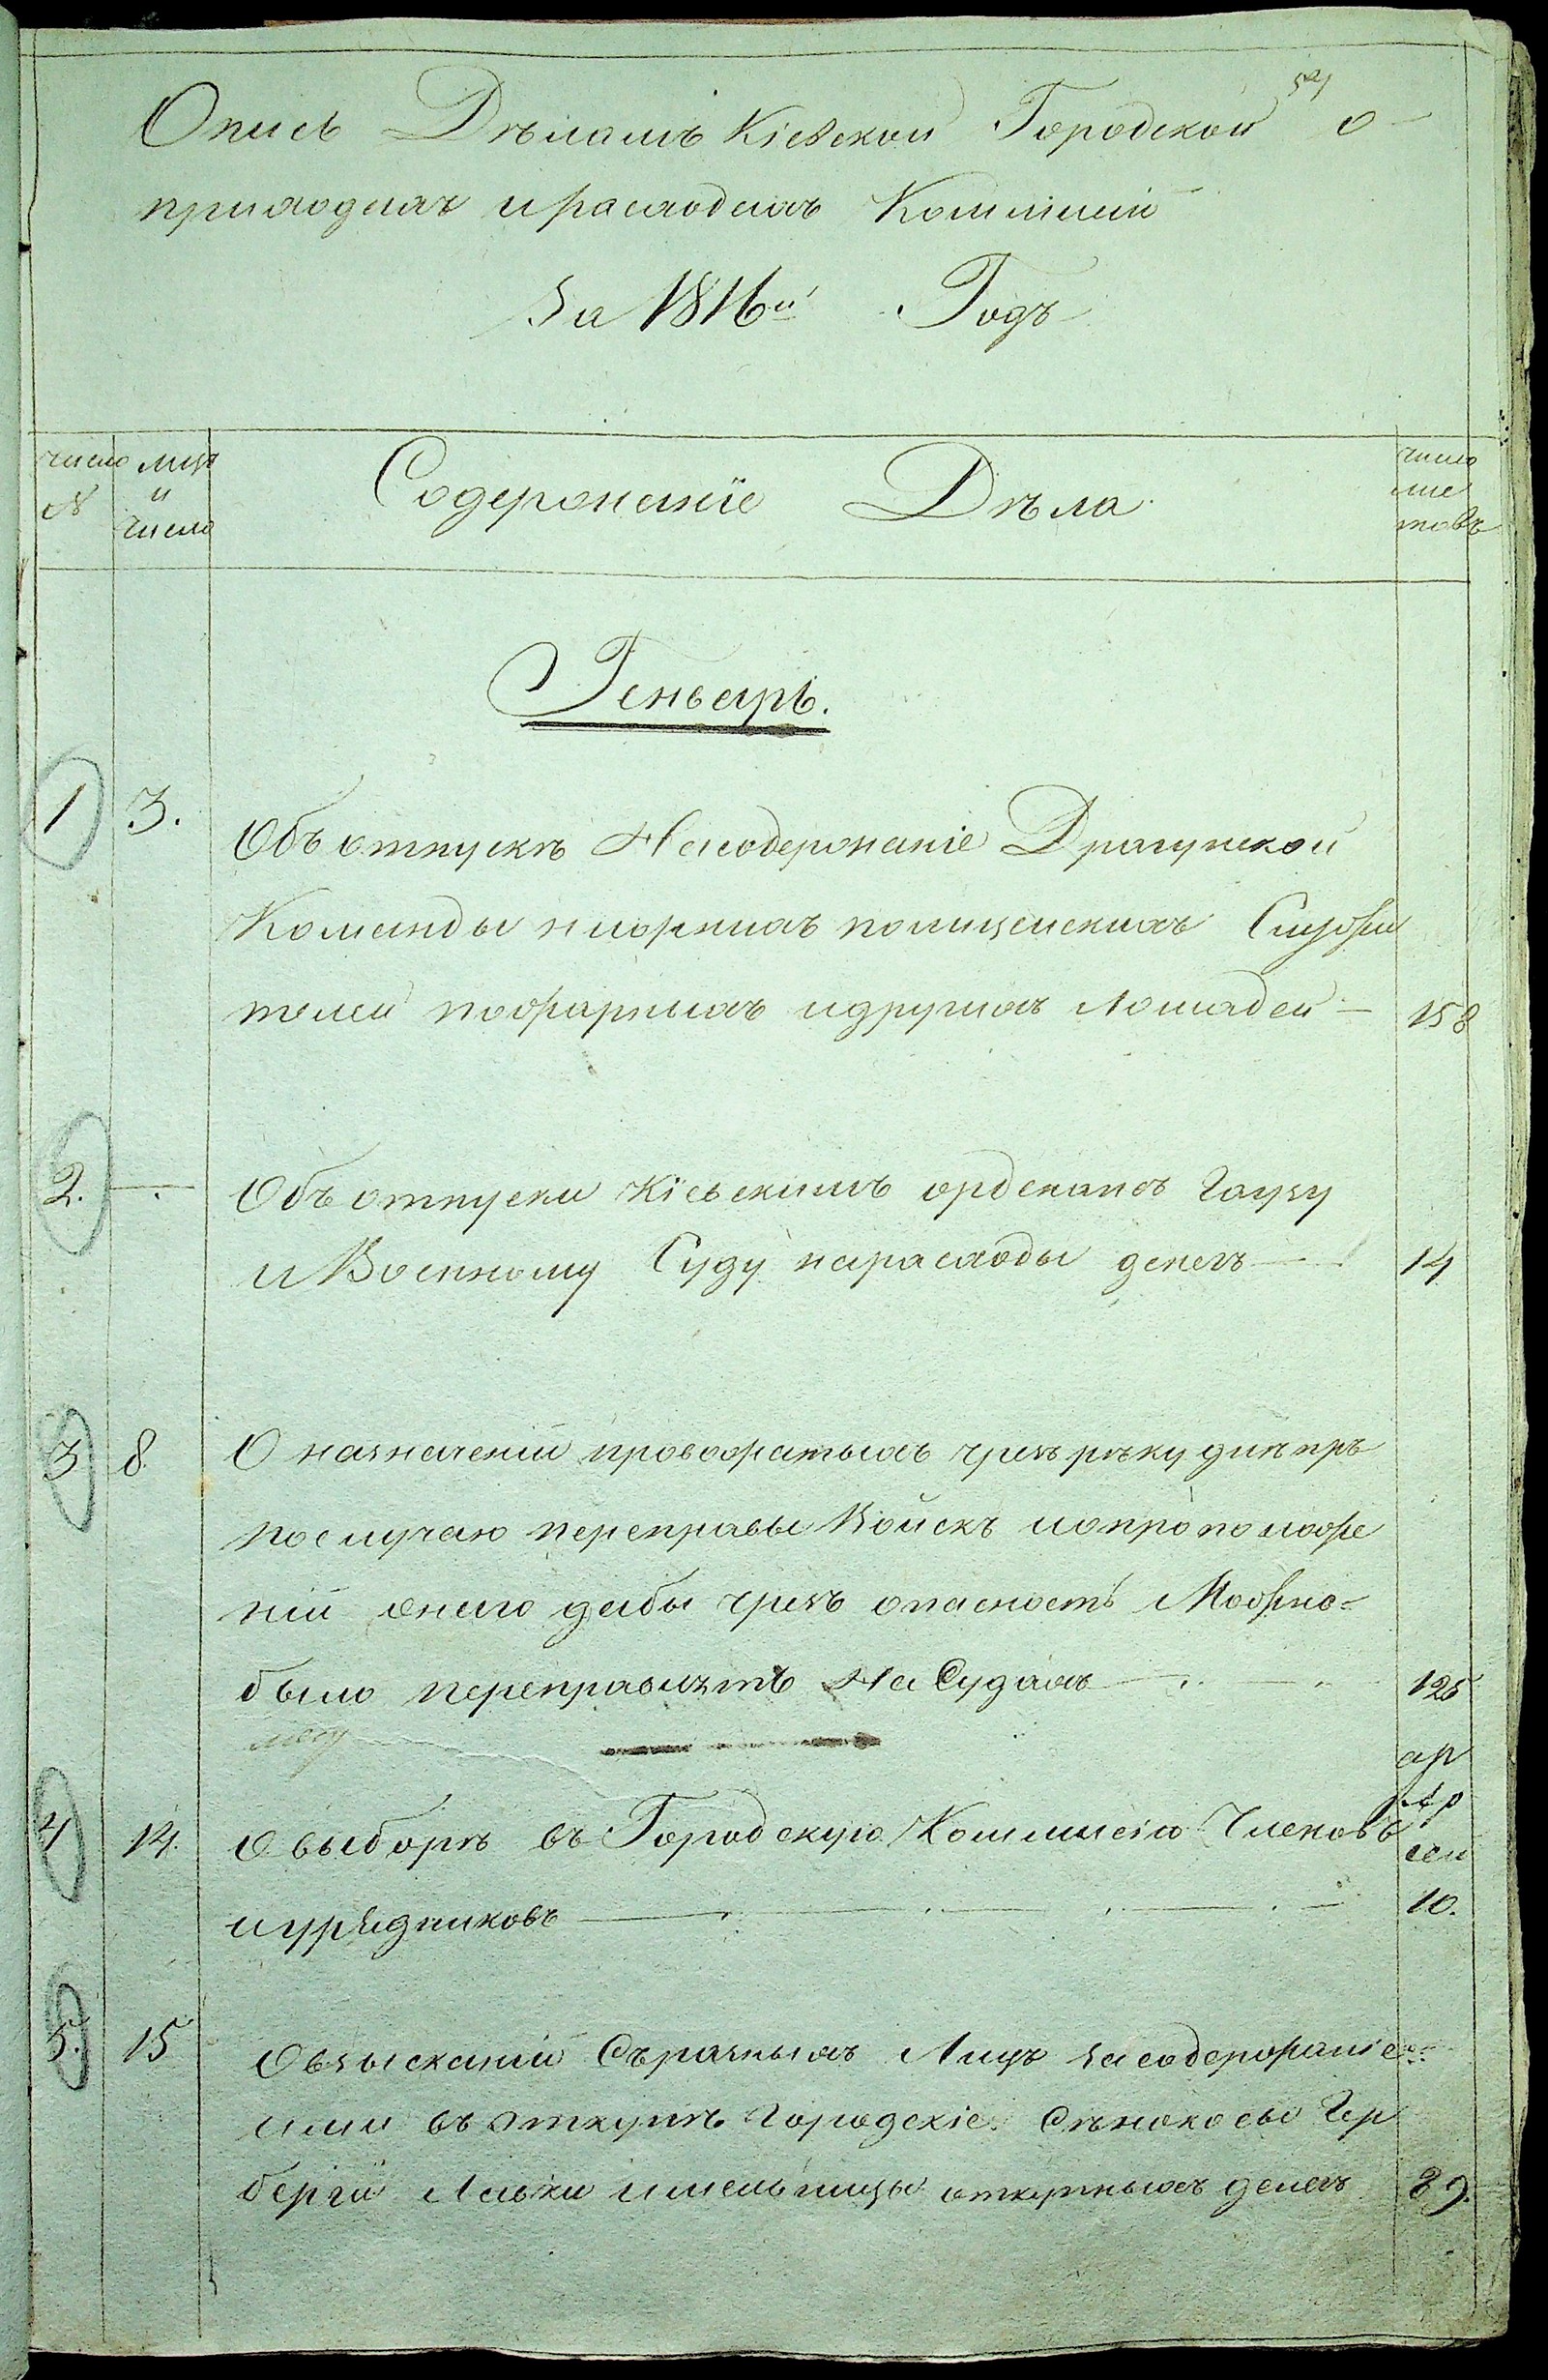 Опись Дѣламъ Кіевской Городской о
приходахъ и расходахъ Коммисіи
За 1816й Годъ
число мцъ
№ и
число
Содержаніе Дѣла
число
лис
товъ
Геньваръ.
1 3. Объ отпускѣ На содержаніе Драгунской
Команды
полицейскихъ Служи
телей пожарныхъ и другихъ лошадей — 158
2. — Объ отпуски Кіевскимъ орденансъ гаузу
и Военному Суду на расходы денегъ — 14
3 8 О назначеніи провожатыхъ чрезъ рѣку днѣпръ
по случаю переправы Войскъ
ній онаго дабы чрезъ опасность Можно-
было переправлять На Судахъ — 125
4 14. О выборѣ въ Городскую Коммисію Членовъ
и урядниковъ — 10.
5. 15 О взысканіи Съ разныхъ Лицъ за содержаніе
ими въ откупѣ городскіе Сѣнокосы
бергіи Лавки и мельницы откупныхъ денегъ 89.